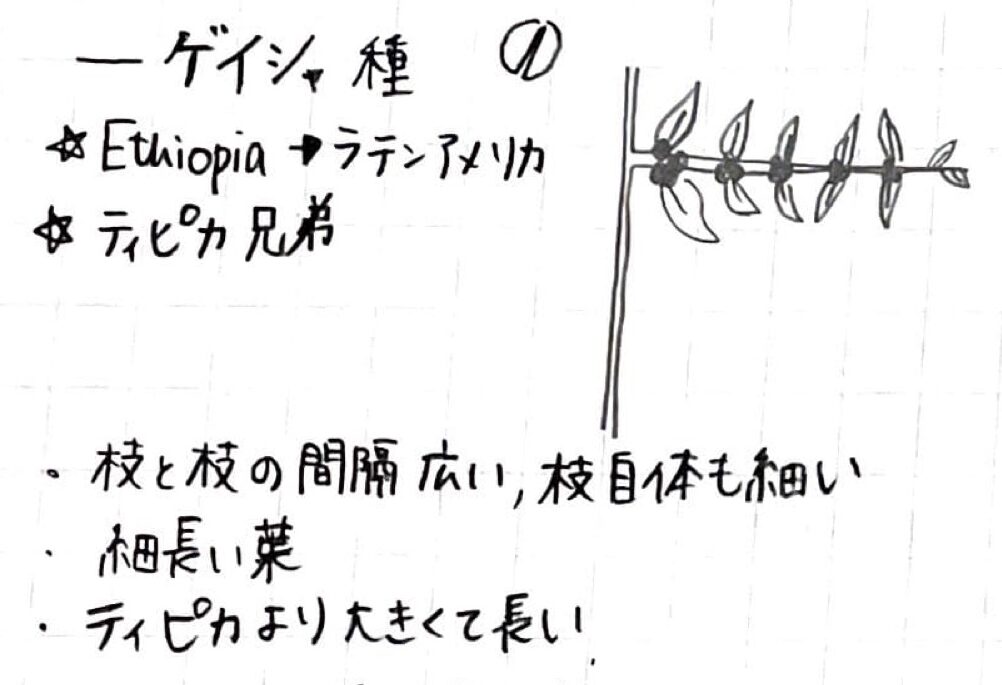 ― ゲイシャ 種 ①
☆ Ethiopia → ラテンアメリカ
☆ ティピカ 兄弟
・枝と枝の間隔広い, 枝自体も細い
・細長い葉
・ティピカより大きくて長い